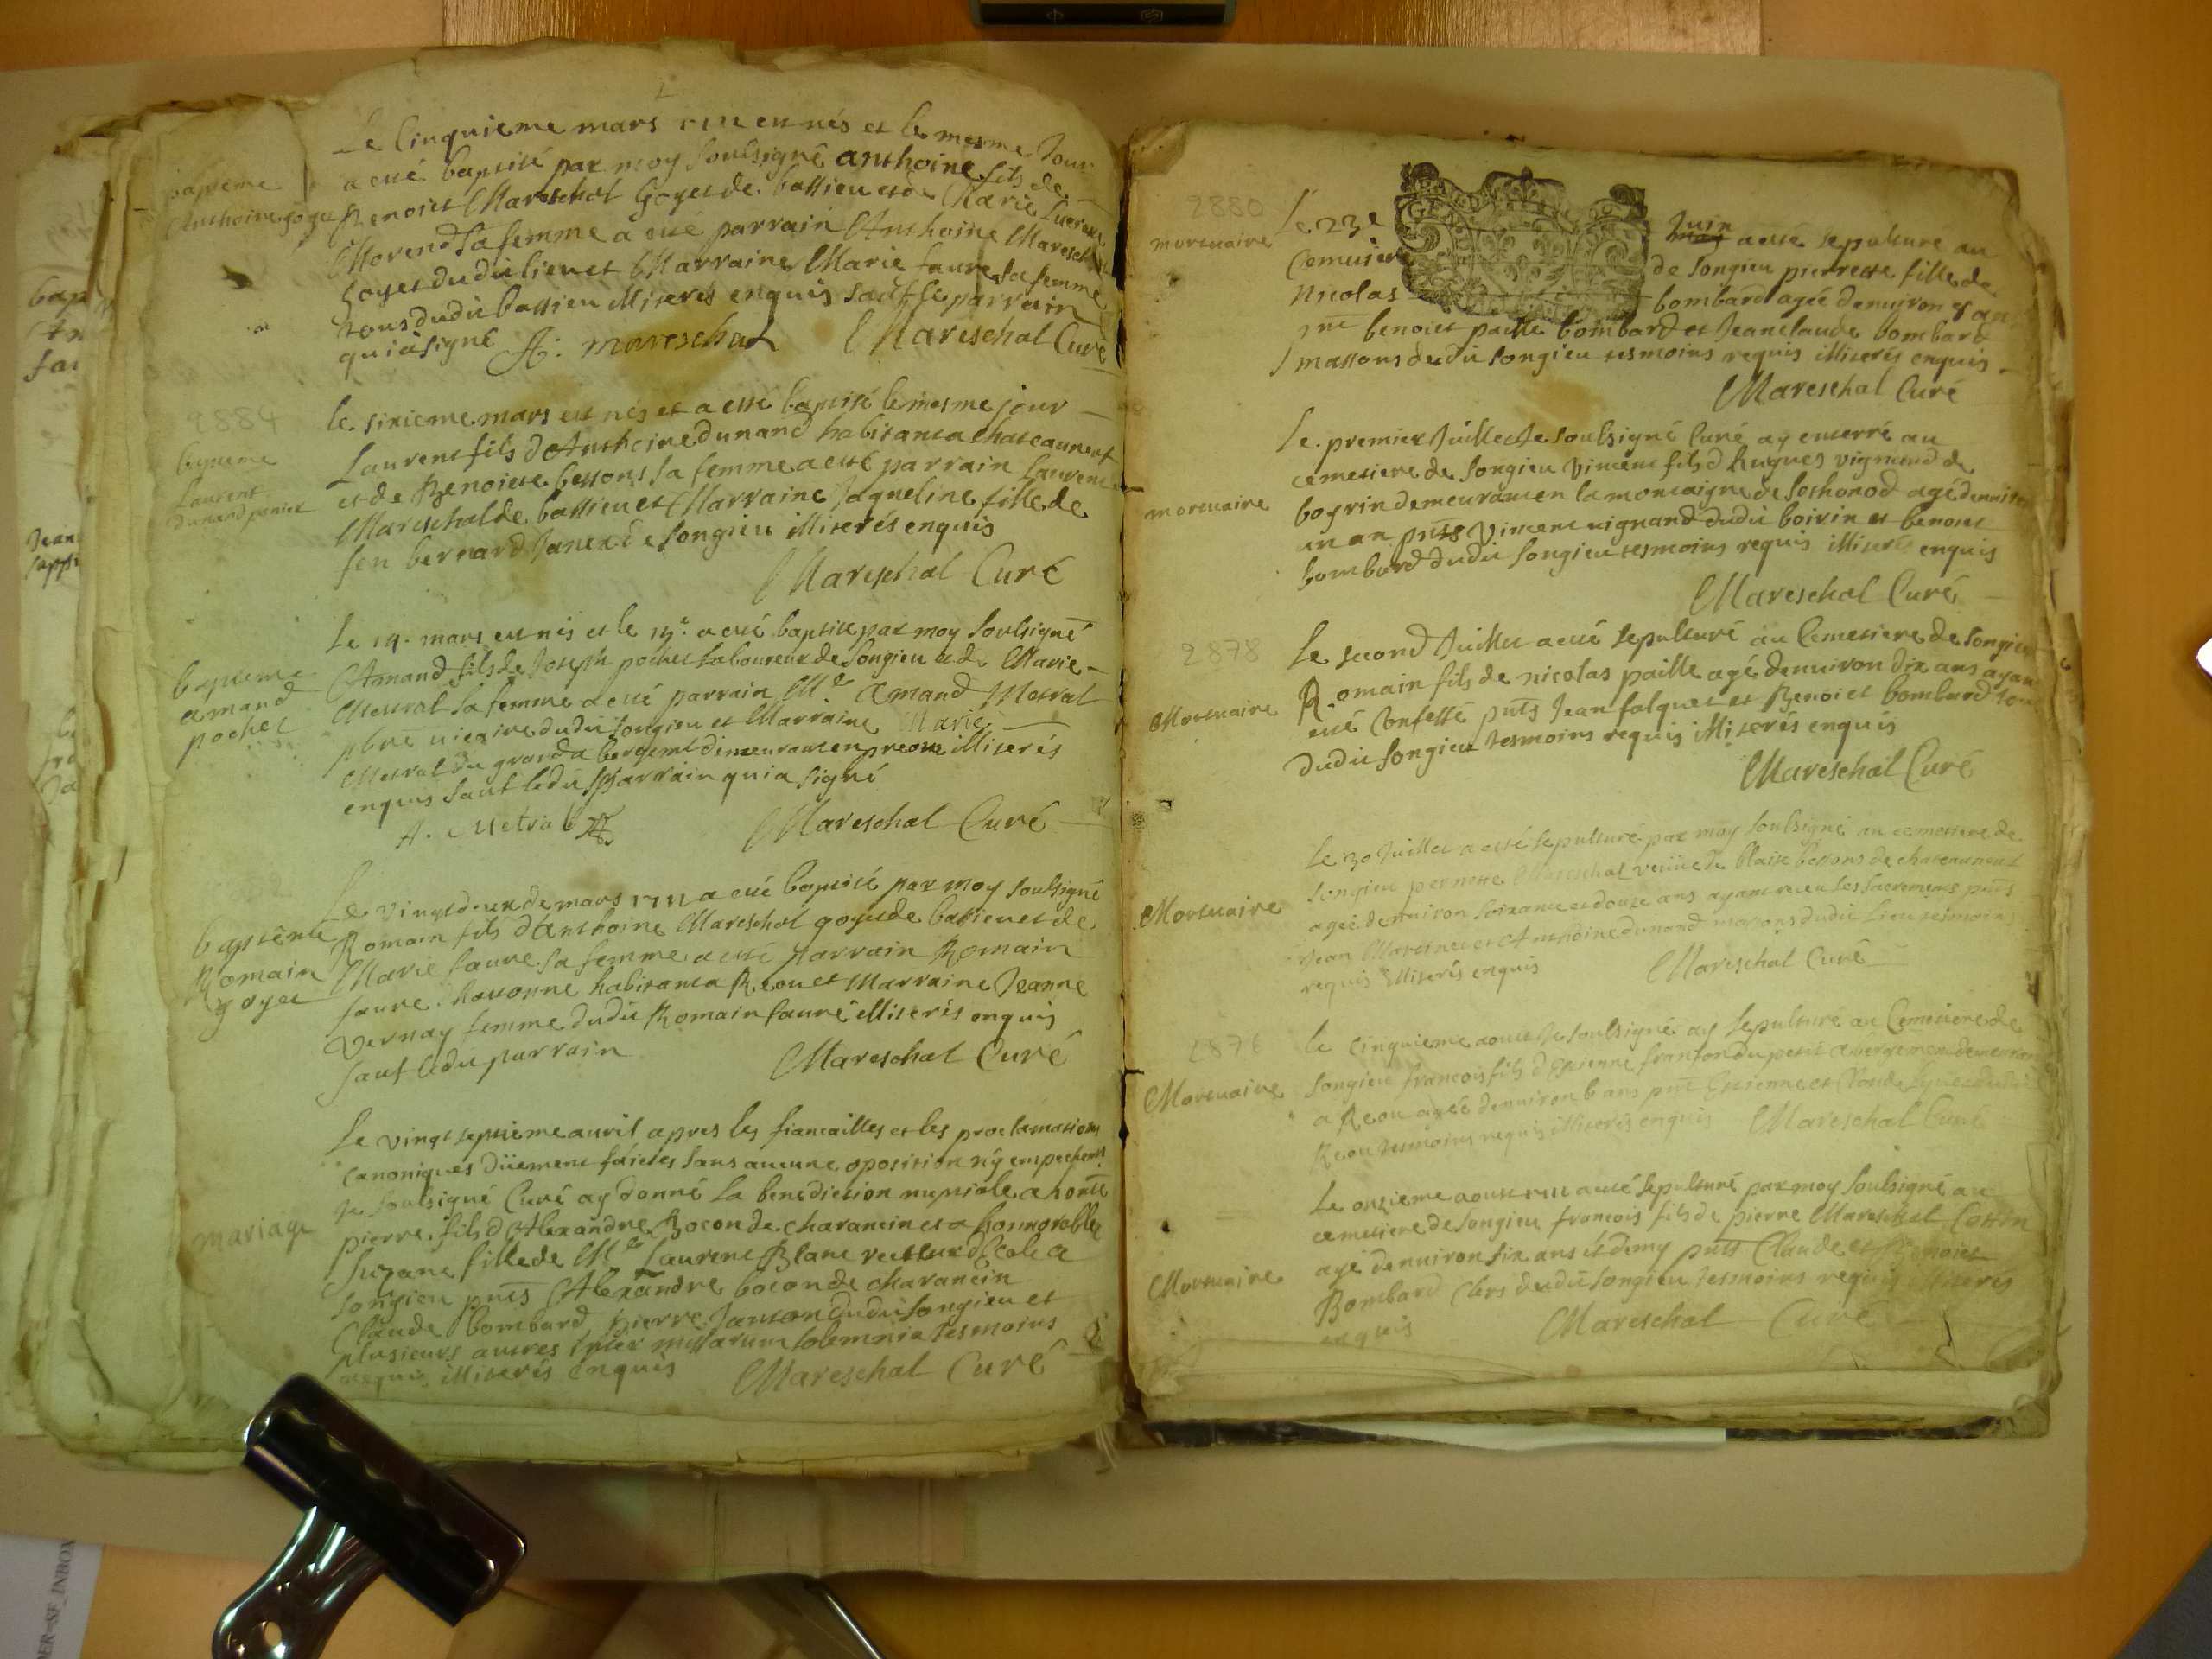 Le Cinquieme mars 1711 est nés et le mesme Jour
a esté baptisé par moy soulsigné anthoine fils de
Benoiet Mareschal Goyet de bassieu et de Marie
Morend sa femme a esté parrain Anthoine Mareschal
Goyet dudit lieu et Marraine Marie faure sa femme
tous dudit bassieu illiterés enquis sauf le parrain
qui a signé A: mareschal Mareschal Curé
bapteme
Anthoine goyet
2884
le sixieme mars est nés et a esté baptisé le mesme jour
Laurent fils d'Anthoine dunand habitant a chateauneuf
et de Benoiete bessons sa femme a esté parrain Laurent
Mareschal de bassieu et Marraine Jaqueline fille de
feu bernard Janex de songieu illiterés enquis
Mareschal Curé
bapteme
Laurent
dunand
Le 14. mars est nés et le 15e. a esté baptisé par moy soulsigné
Amand fils de Joseph pochet laboureur de songieu et de Marie
Mestral sa femme a esté parrain Mre Amand Mestral
pbre vicaire dudit songieu et Marraine Marie
Mestral du grand abergemt demeurant en illiterés
enquis sauf ledit parrain qui a signé
A. Metral Mareschal Curé
bapteme
amand
pochet
Le vingt deux de mars 1711 a esté baptisé par moy soulsigné
Romain fils d'Anthoine Mareschal goyet de bassieu et de
Marie faure sa femme a esté parrain Romain
faure habitant a Reou et Marraine Jeanne
Vernay femme dudit Romain faure illiterés enquis
sauf ledit parrain Mareschal Curé
baptême
Romain
goyet
Le vingt septieme avril apres les fiancailles et les proclamations
canoniques düement faictes sans aucune oposition ny empechemt
Je soulsigné Curé ay donné la benediction nuptiale a honte
pierre, fils d'Alexandre Bocon de charancin et a honnorable
Suzane fille de Mre Laurent Blanc recteur d'Ecole a
songieu pnts Alexandre bocon de charancin
Claude bombard pierre Janton dudit songieu et
plusieurs autres Inter missarum solemnia tesmoins
requis illiterés enquis Mareschal Curé
mariage
2880
Le 23e Juin a esté sepulture au
Cemetiere de songieu pierrette fille de
Nicolas bombard agée denuiron
pnt benoiet paille bombard et Jean claude bombard
massons dudit songieu tesmoins requis illiterés enquis
Mareschal Curé
mortuaire
Le premier Juillet Je soulsigné Curé ay enterré au
cemetiere de songieu Vincent fils d'hugues vignand de
boyrin demeurant en la montaigne de sothonod agé denuiron
un an pnts Vincent vignand dudit boirin et benoiet
bombard dudit songieu tesmoins requis illiterés enquis
Mareschal Curé
mortuaire
2878
Le second Juillet a esté sepulturé au Cemetiere de songieu
Romain fils de nicolas paille agé denuiron dix ans ayant
esté Confessé pnts Jean falquet et Benoiet bombard tous
dudit songieu tesmoins requis illiterés enquis
Mareschal Curé
Mortuaire
Le 30 Juillet a esté sepulturé par moy soulsigné au cemetiere de
songieu pernette Mareschal veuue de blaise bessons de chateauneuf
agée denuiron soixante et douze ans ayant receu les sacrements pnts
Jean Martinet et Anthoine dunand massons dudit Lieu tesmoins
requis illiterés enquis Mareschal Curé
Mortuaire
2876
le Cinquieme aoust Je soulsigné ay sepulturé au Cemetiere de
songieu francois fils d'Estienne franson du petit abergement demeurant
a Reou agée denuiron 6 ans pnt Estienne et
Reou tesmoins requis illiterés enquis Mareschal Curé
Mortuaire
Le onzieme aoust 1711 a esté sepulturé par moy soulsigné au
cemetiere de songieu francois fils de pierre Mareschal
agé denuiron six ans et demy pnts Claude et Benoiet
Bombard Clers dudit songieu tesmoins requis illiterés
enquis Mareschal Curé
Mortuaire